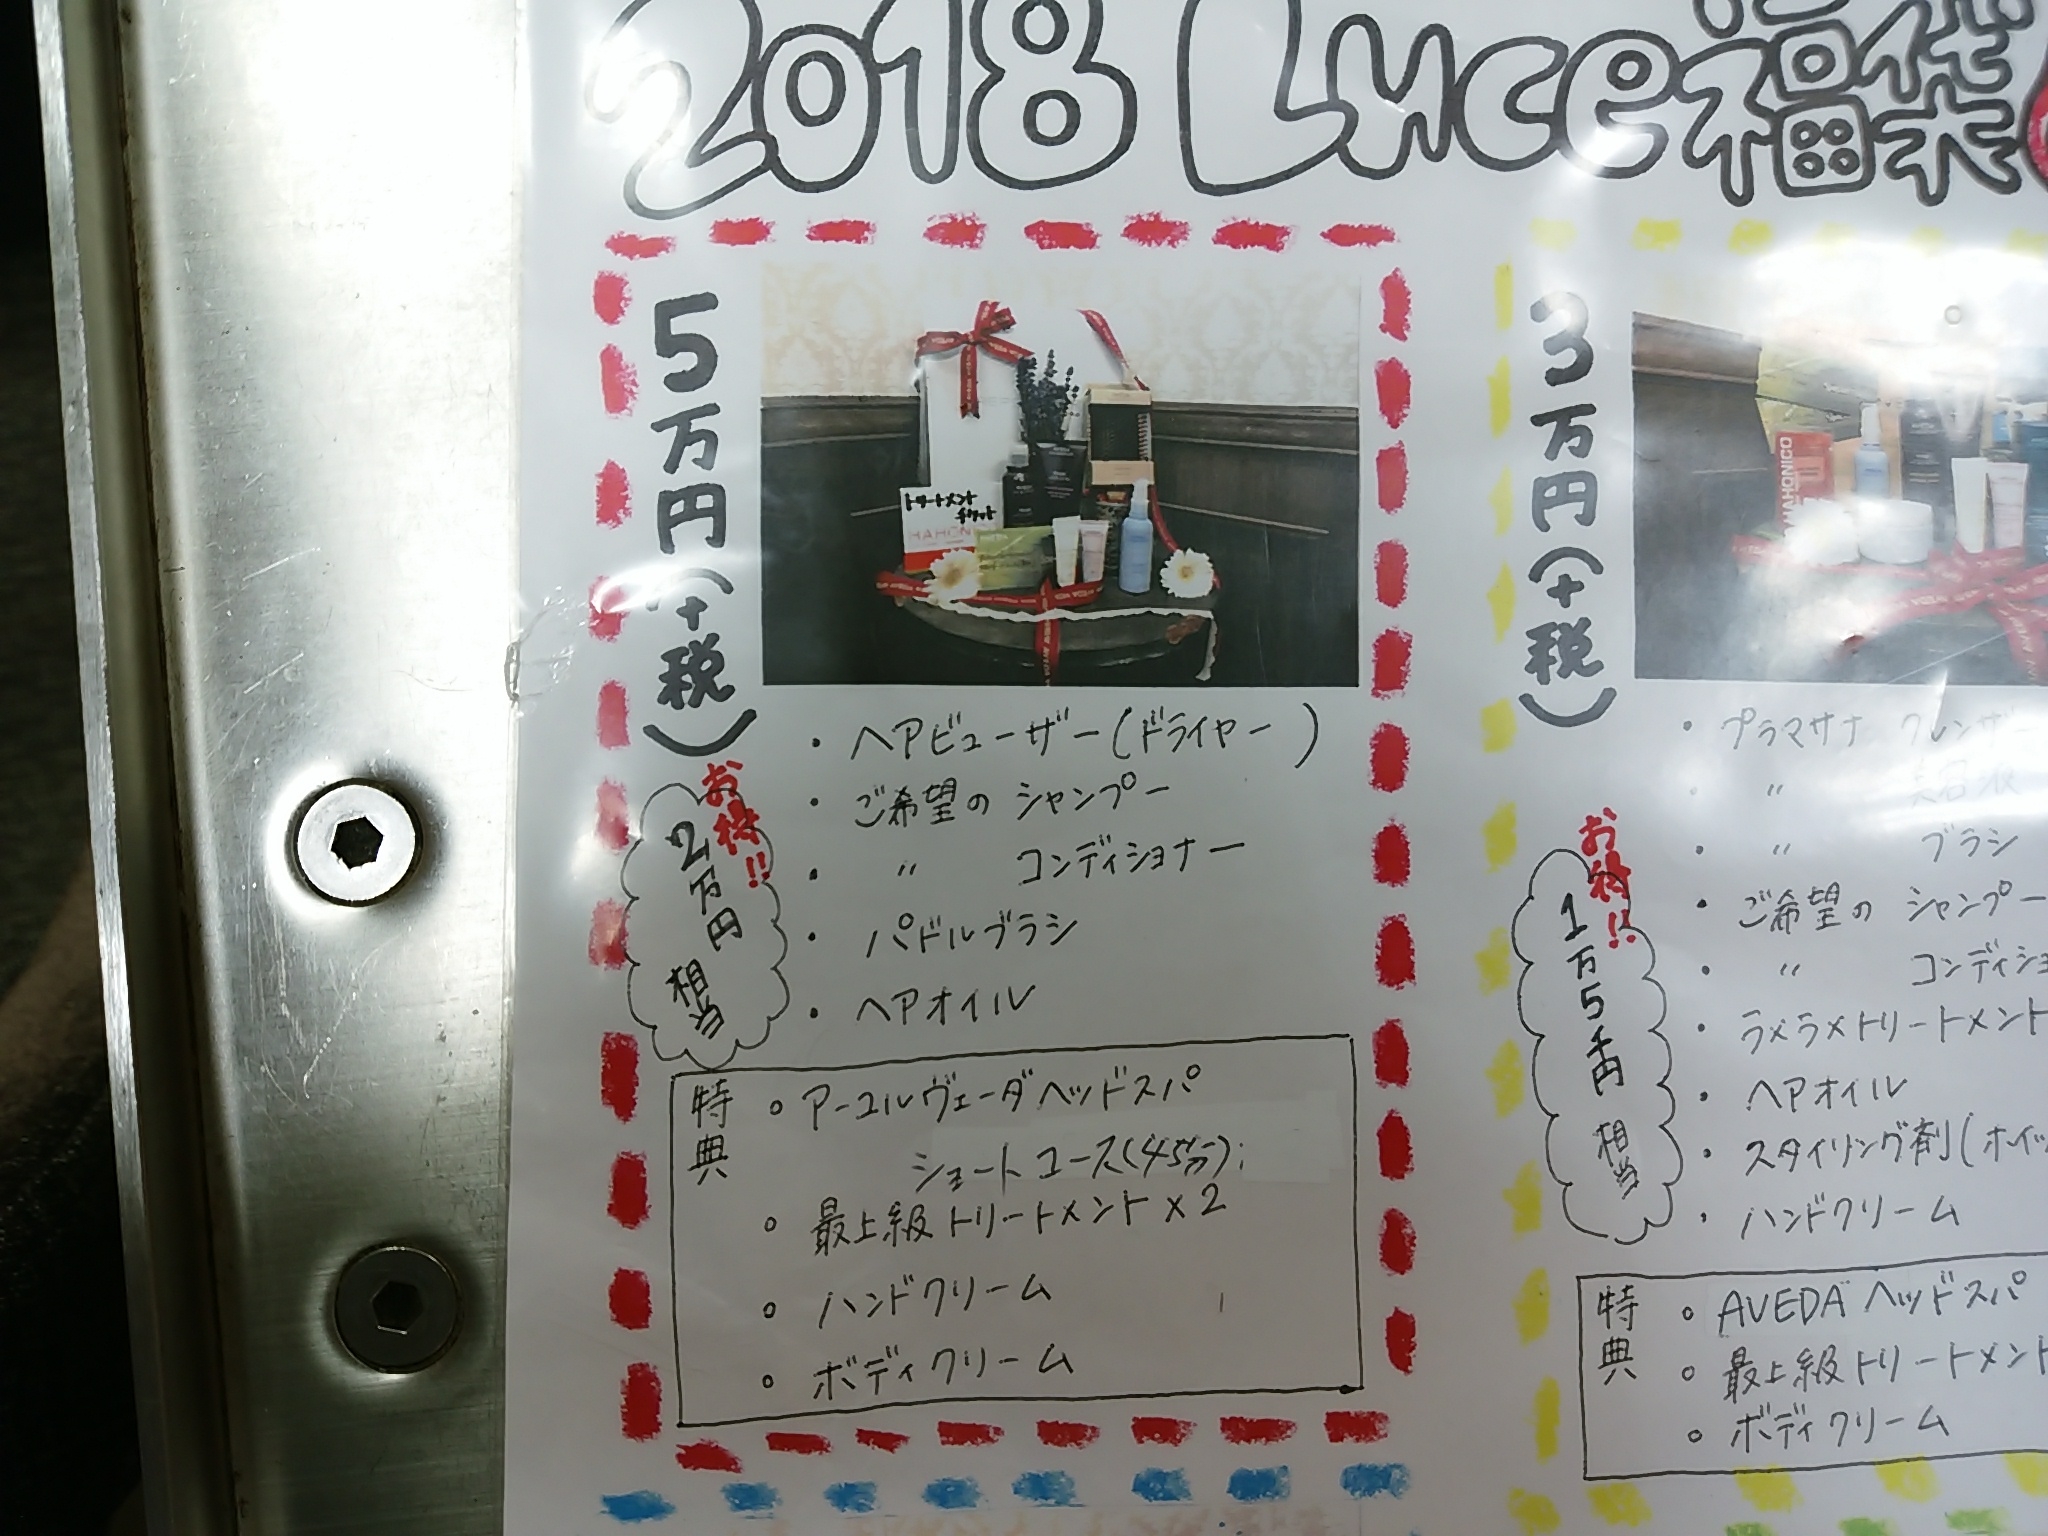 2018 Luce福袋
5万円(+税)
お得!!
2万円相当
トリートメント
チケット
HAHONI
・ヘアビューザー(ドライヤー)
・ご希望の シャンプー
・〃 コンディショナー
・パドルブラシ
・ヘアオイル
特典
○アーユルヴェーダヘッドスパ
ショートコース(45分)
○最上級トリートメント×2
○ハンドクリーム
○ボディクリーム
3万円(+税)
お得!!
1万5千円相当
HAHONICO
・プラマサナ クレンザー
・〃 美容液
・〃 ブラシ
・ご希望の シャンプー
・〃 コンディショ
・ラメラメトリートメント
・ヘアオイル
・スタイリング剤(ホイッ
・ハンドクリーム
特典
○AVEDAヘッドスパ
○最上級トリートメント
○ボディクリーム